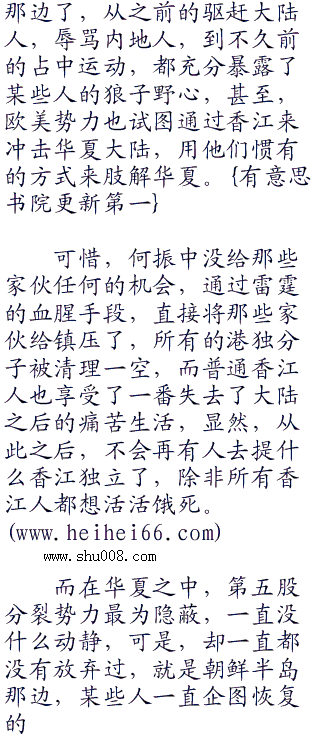 那边了，从之前的驱赶大陆
人，辱骂内地人，到不久前
的占中运动，都充分暴露了
某些人的狼子野心，甚至，
欧美势力也试图通过香江来
冲击华夏大陆，用他们惯有
的方式来肢解华夏。{有意思
书院更新第一}
可惜，何振中没给那些
家伙任何的机会，通过雷霆
的血腥手段，直接将那些家
伙给镇压了，所有的港独分
子被清理一空，而普通香江
人也享受了一番失去了大陆
之后的痛苦生活，显然，从
此之后，不会再有人去提什
么香江独立了，除非所有香
江人都想活活饿死。
(www.heihei66.com)
www.shu008.com
而在华夏之中，第五股
分裂势力最为隐蔽，一直没
什么动静，可是，却一直都
没有放弃过，就是朝鲜半岛
那边，某些人一直企图恢复
的